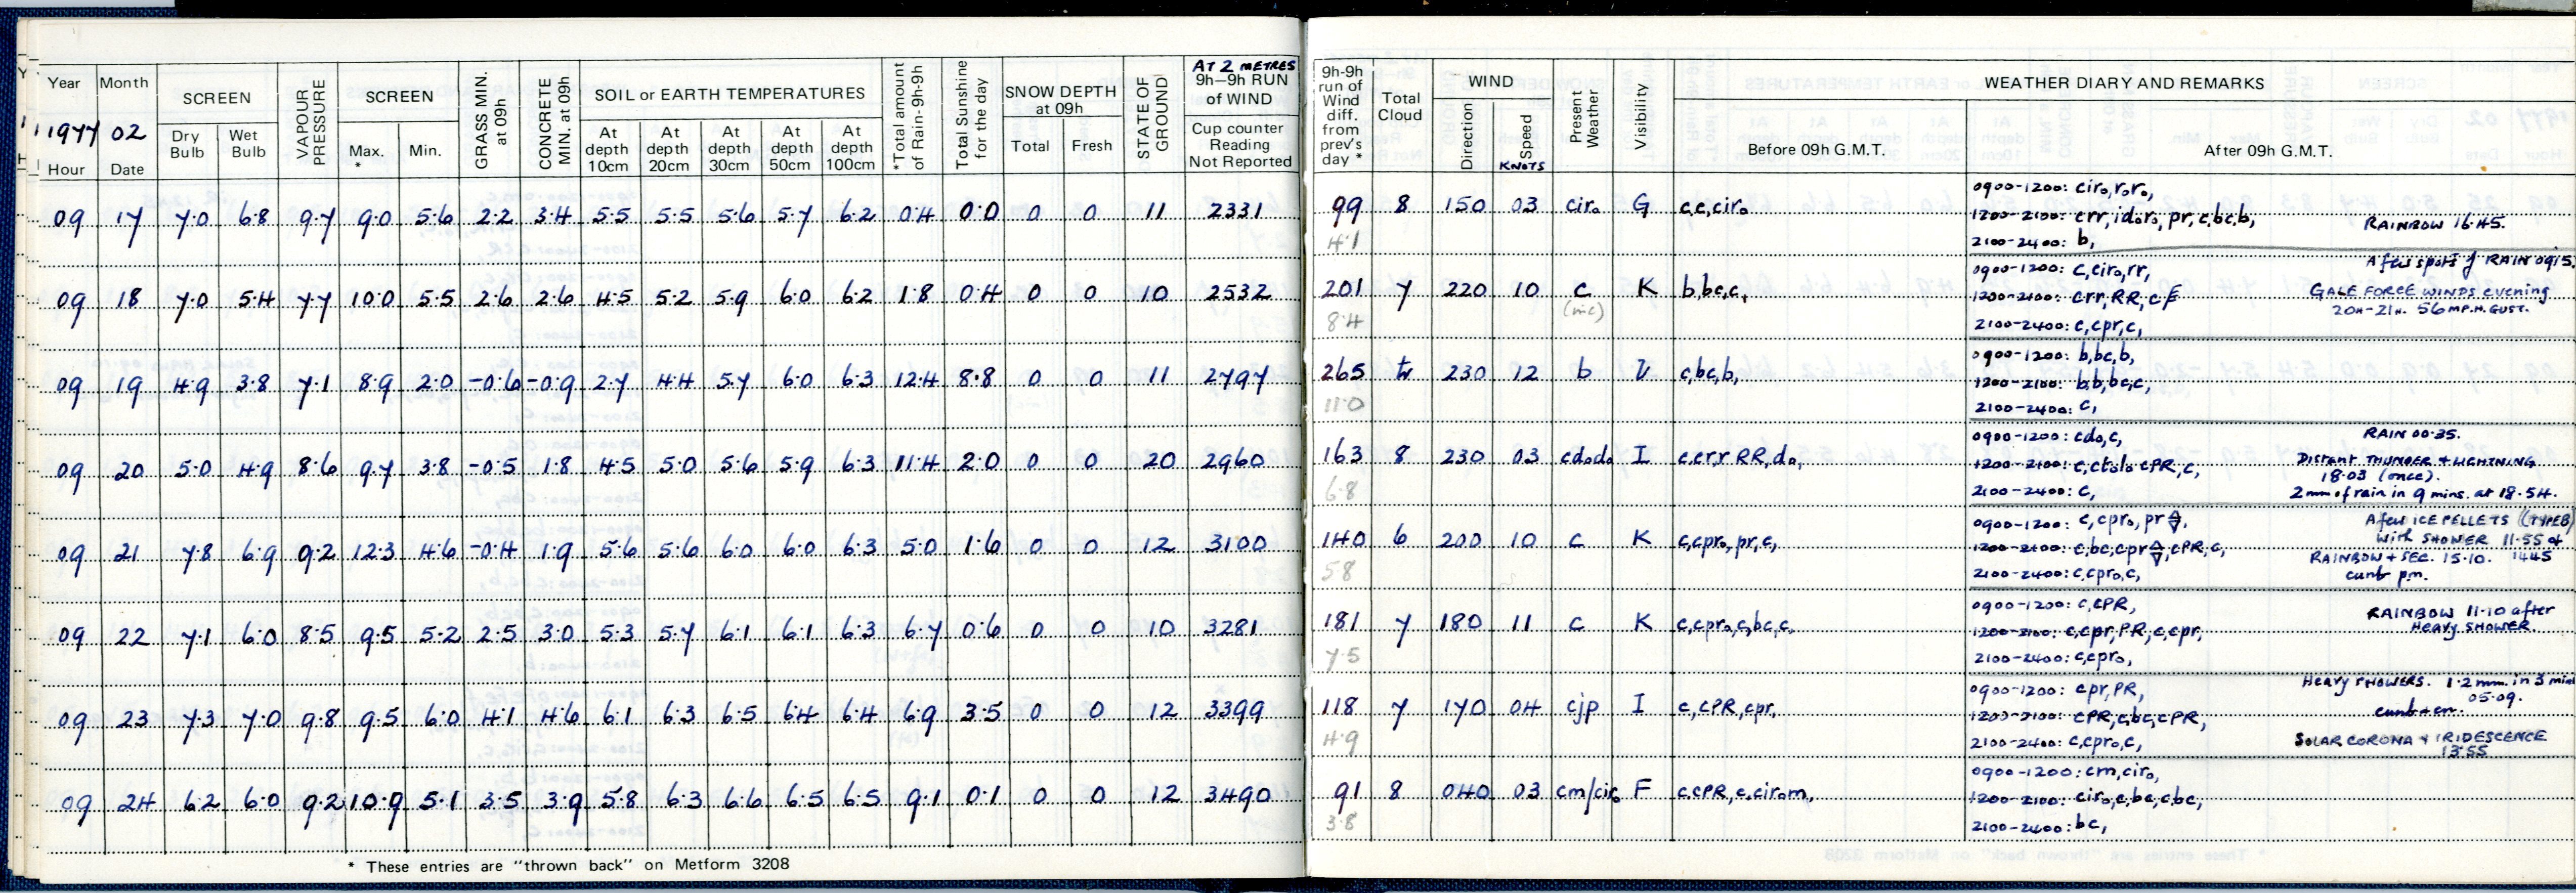 AT 2 METRES
Year Month SCREEN VAPOUR PRESSURE SCREEN GRASS MIN. at 09h CONCRETE MIN. at 09h SOIL or EARTH TEMPERATURES *Total amount of Rain-9h-9h Total Sunshine for the day SNOW DEPTH at 09h STATE OF GROUND 9h—9h RUN of WIND
1977 02 Dry Bulb Wet Bulb Max. * Min. At depth 10cm At depth 20cm At depth 30cm At depth 50cm At depth 100cm Total Fresh Cup counter Reading Not Reported
Hour Date
09 17 7.0 6.8 9.7 9.0 5.6 2.2 3.4 5.5 5.5 5.6 5.7 6.2 0.4 0.0 0 0 11 2331
09 18 7.0 5.4 7.7 10.0 5.5 2.6 2.6 4.5 5.2 5.9 6.0 6.2 1.8 0.4 0 0 10 2532
09 19 4.9 3.8 7.1 8.9 2.0 -0.6 -0.9 2.7 4.4 5.7 6.0 6.3 12.4 8.8 0 0 11 2797
09 20 5.0 4.9 8.6 9.7 3.8 -0.5 1.8 4.5 5.0 5.6 5.9 6.3 11.4 2.0 0 0 20 2960
09 21 7.8 6.9 9.2 12.3 4.6 -0.4 1.9 5.6 5.6 6.0 6.0 6.3 5.0 1.6 0 0 12 3100
09 22 7.1 6.0 8.5 9.5 5.2 2.5 3.0 5.3 5.7 6.1 6.1 6.3 6.7 0.6 0 0 10 3281
09 23 7.3 7.0 9.8 9.5 6.0 4.1 4.6 6.1 6.3 6.5 6.4 6.4 6.9 3.5 0 0 12 3399
09 24 6.2 6.0 9.2 10.9 5.1 3.5 3.9 5.8 6.3 6.6 6.5 6.5 9.1 0.1 0 0 12 3490
* These entries are "thrown back" on Metform 3208
9h-9h run of Wind diff. from prev's day * Total Cloud WIND Present Weather Visibility WEATHER DIARY AND REMARKS
Direction Speed KNOTS Before 09h G.M.T. After 09h G.M.T.
99 8 150 03 ciro G c,c,ciro
4.1
0900-1200: ciro,roro,
1200-2100: crr,idoro,pr,c,bc,b, RAINBOW 16.45.
2100-2400: b,
201 7 220 10 c K b,bc,c,
8.4 (inc)
0900-1200: c,ciro,rr, A few spots of RAIN 0915
1200-2100: crr,RR,c GALE FORCE WINDS evening
2100-2400: c,cpr,c, 20H-21H. 56 M.P.H. GUST.
265 230 12 b V c,bc,b,
11.0
0900-1200: b,bc,b,
1200-2100: b,b,bc,c,
2100-2400: c,
163 8 230 03 cdodo I c,crr RR,do,
6.8
0900-1200: cdo,c, RAIN 00.35.
1200-2100: c,ctolo cPR,c, DISTANT THUNDER + LIGHTNING 18.03 (once).
2100-2400: c, 2 mm of rain in 9 mins. at 18.54.
140 6 200 10 c K c,cpro,pr,c,
5.8
0900-1200: c,cpro,pr A few ICE PELLETS (TYPE B)
with SHOWER 11.55 of
1200-2100: c,bc,cpr ,cPR,c, RAINBOW + SEC. 15.10. 1445
2100-2400: c,cpro,c, cunb pm.
181 7 180 11 c K c,cpro,c,bc,c,
7.5
0900-1200: c,cPR, RAINBOW 11.10 after
1200-2100: c,cpr,PR,c,cpr, HEAVY SHOWER.
2100-2400: c,cpro,
118 7 170 04 cjp I c,cPR,cpr,
4.9
0900-1200: cpr,PR, Heavy SHOWERS. 1.2 mm. in 3 min
05.09.
1200-2100: cPR,c,bc,cPR,
2100-2400: c,cpro,c, SOLAR CORONA + IRIDESCENCE
13.55
91 8 040 03 cm/ciro F c,cPR,c,cirom,
3.8
0900-1200: cm,ciro,
1200-2100: ciro,c,bc,c,bc,
2100-2400: bc,